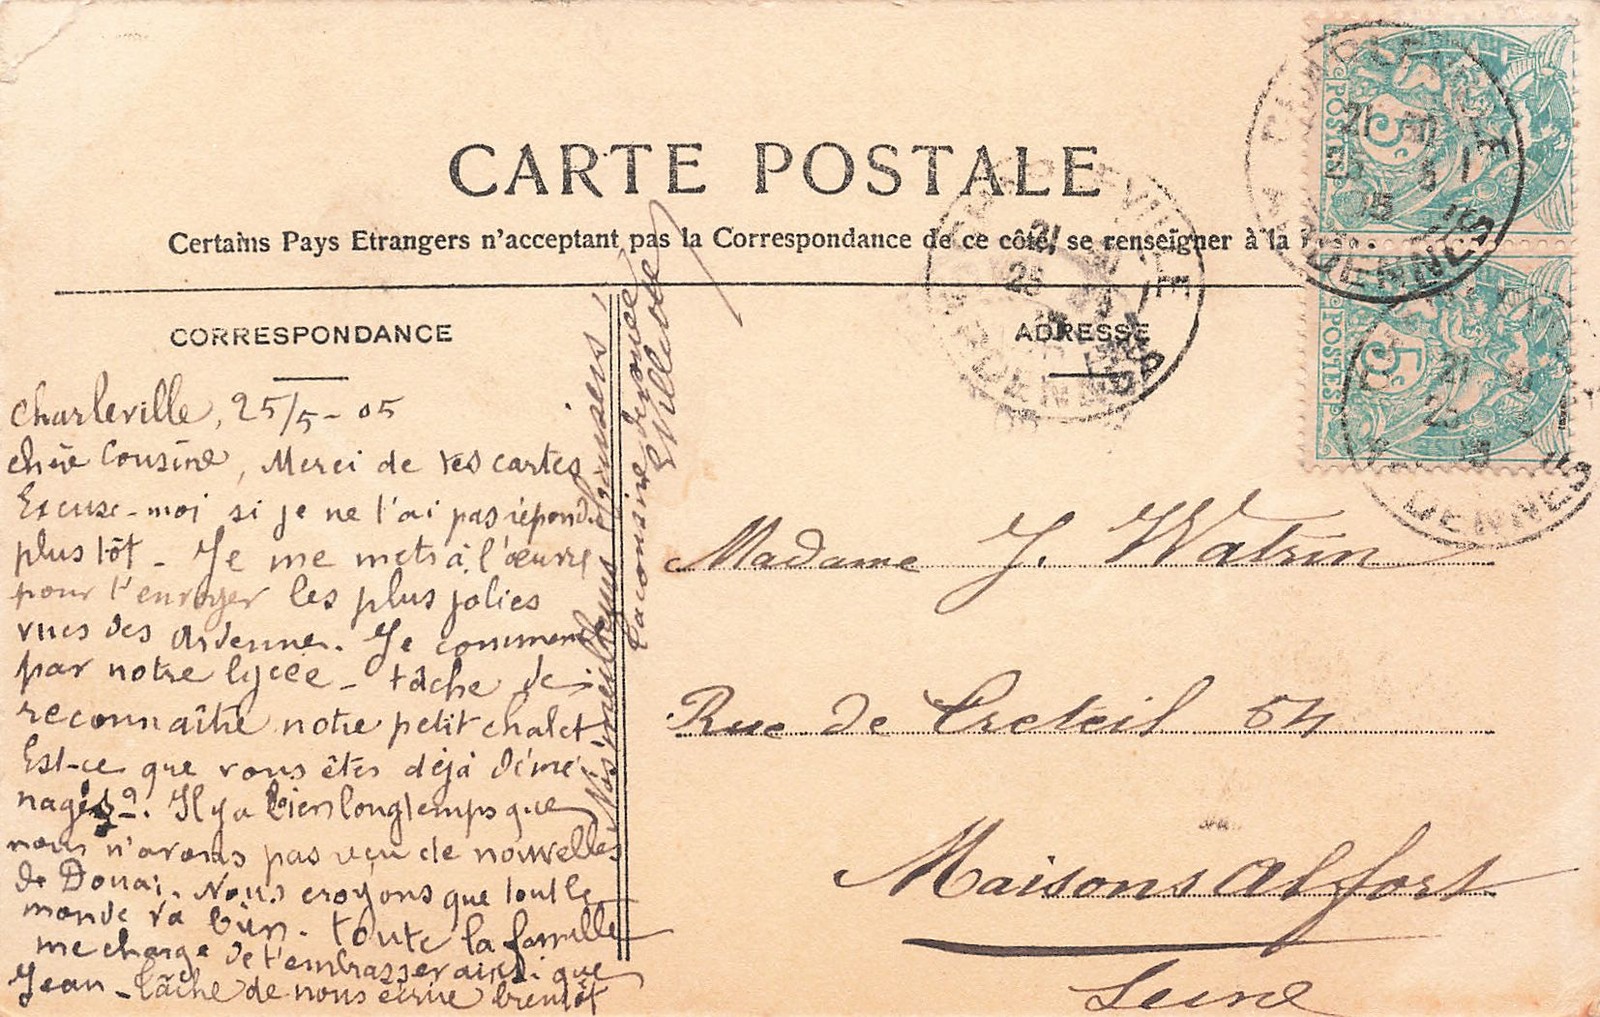 CARTE POSTALE
Certains Pays Etrangers n'acceptant pas la Correspondance de ce côté, se renseigner à la
CORRESPONDANCE
ADRESSE
Charleville, 25/5-05
chère Cousine, Merci de tes cartes
Excuse-moi si je ne t'ai pas répondu
plus tôt - Je me mets à l'œuvre
pour t'envoyer les plus jolies
vues des Ardenne. Je commence
par notre lycée - tâche de
reconnaître notre petit chalet
Est-ce que vous êtes déjà démé
nagés?. Il y a bien longtemps que
nous n'avons pas reçu de nouvelles
de Douai. Nous croyons que tout le
monde va bien. toute la famille
me charge de t'embrasser ainsi que
Jean - tâche de nous écrire bientôt
Nos meilleurs baisers
Ta cousine dévouée
Madame J. Watrin
Rue de Creteil 54
Maisons Alfort
Seine
POSTES 5
POSTES 5
CHARLEVILLE
ARDENNES
21 25 5 05